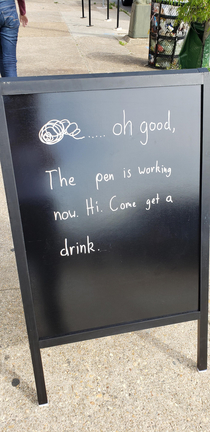 ..... oh good,
The pen is working
now. Hi. Come get a
drink.